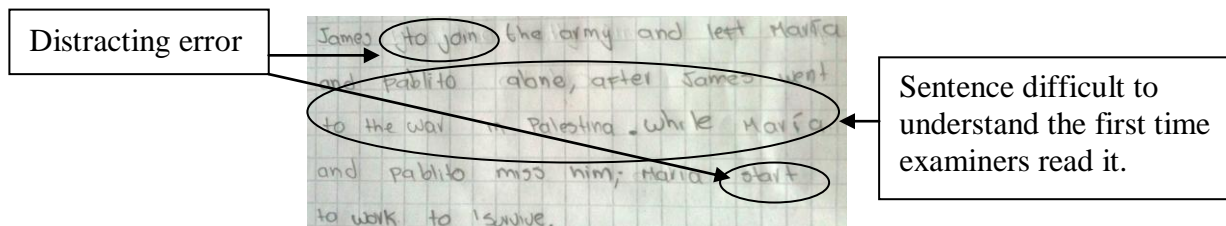 Distracting error
James to join the army and left María
and pablito alone, after James went
to the war in Palestina. while María
and pablito miss him; María start
to work to survive.
Sentence difficult to
understand the first time
examiners read it.